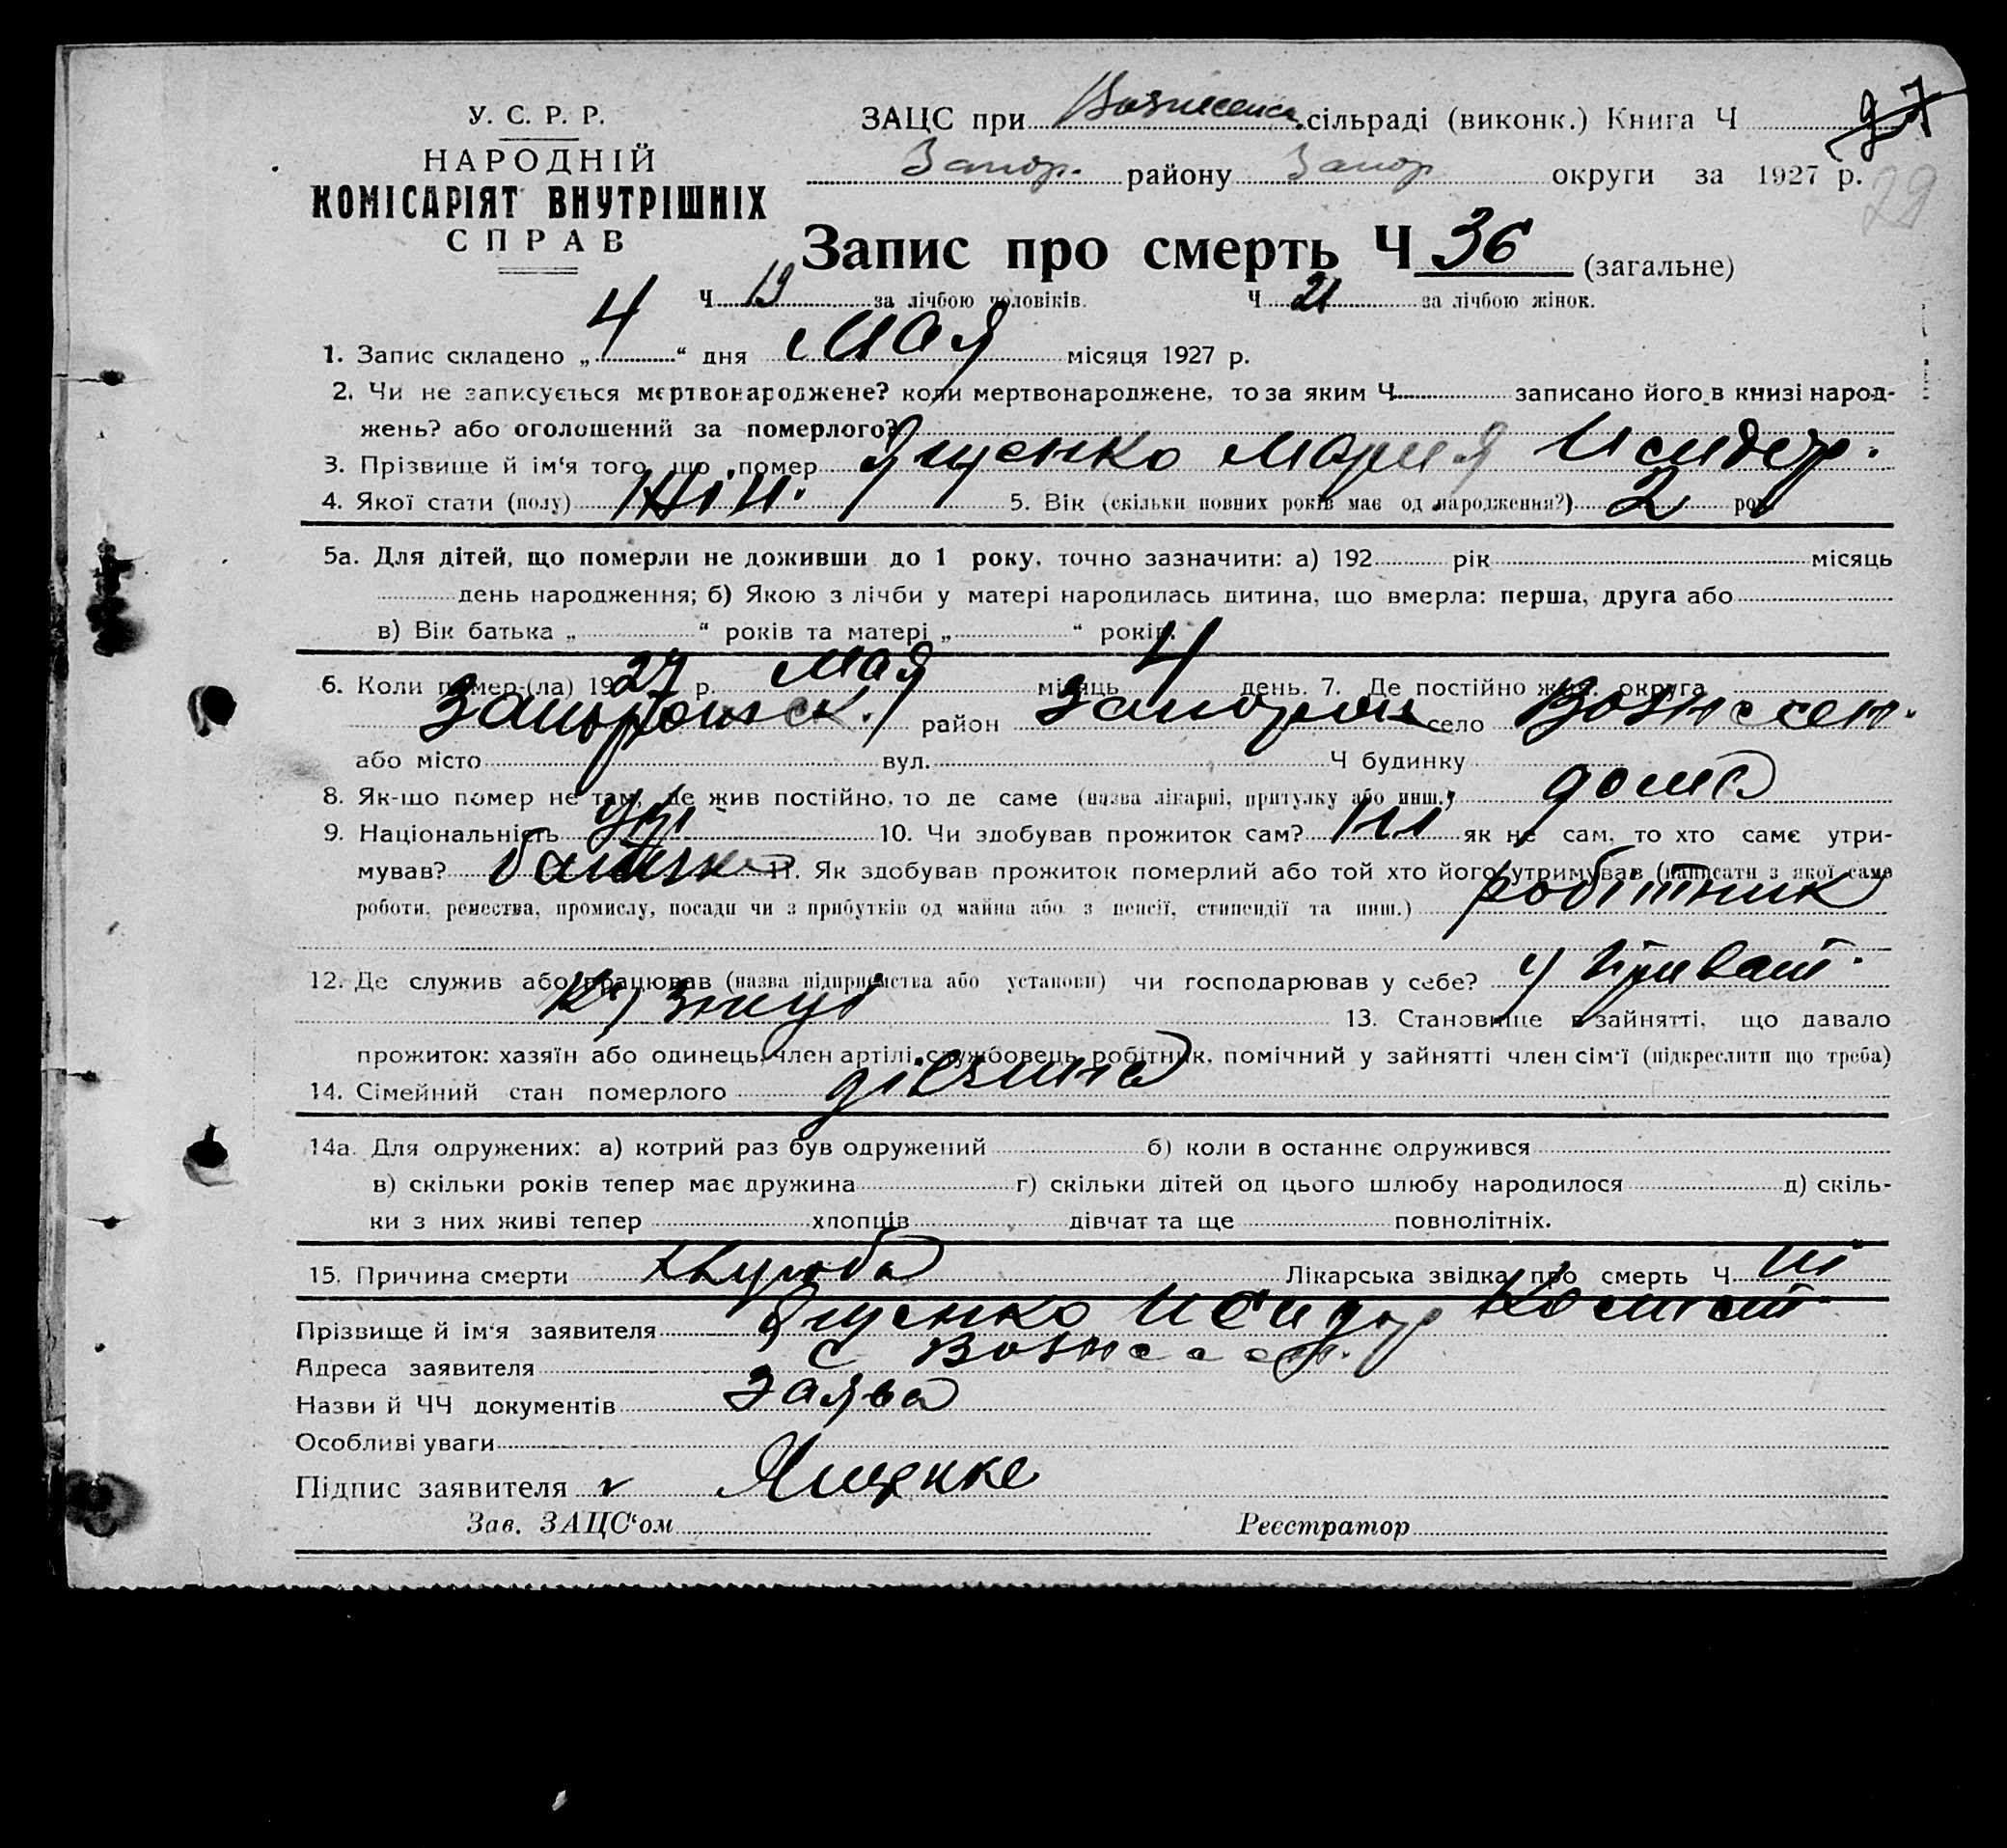 У. С. Р. Р.
НАРОДНІЙ
КОМІСАРІЯТ ВНУТРІШНІХ
СПРАВ
ЗАЦС при Вознесенск. сільраді (виконк.) Книга Ч
Запор. району Запор округи за 1927 р.
29
Запис про смерть Ч 36 (загальне)
Ч 19 за лічбою чоловіків. Ч 21 за лічбою жінок.
1. Запис складено „ 4 “ дня мая місяця 1927 р.
2. Чи не записується мертвонароджене? коли мертвонароджене, то за яким Ч записано його в книзі народ-
жень? або оголошений за померлого?
3. Прізвище й ім‘я того, що помер Ященко Мария Исидор.
4. Якої стати (полу) жін. 5. Вік (скільки повних років має од народження?) 2 рок
5а. Для дітей, що померли не доживши до 1 року, точно зазначити: а) 192 рік місяць
день народження; б) Якою з лічби у матері народилась дитина, що вмерла: перша, друга або
в) Вік батька „ “ років та матері „ “ років.
6. Коли помер-(ла) 1927 р. мая місяць 4 день. 7. Де постійно жив: округа
Запорожск. район Запорож село Вознесен.
або місто вул. Ч будинку
8. Як-що помер не там, де жив постійно, то де саме (назва лікарні, притулку або инш.) дома
9. Національність Укр 10. Чи здобував прожиток сам? ні як не сам, то хто саме утри-
мував? батько 11. Як здобував прожиток померлий або той хто його утримував (написати з якої саме
роботи, ремества, промислу, посади чи з прибутків од майна або з пенсії, стипендії та инш.) робітник
12. Де служив або працював (назва підприємства або установи) чи господарював у себе? у приват.
кузниці 13. Становище в зайнятті, що давало
прожиток: хазяїн або одинець, член артілі, службовець, робітник, помічний у зайнятті член сім‘ї (підкреслити що треба)
14. Сімейний стан померлого дівчина
14а. Для одружених: а) котрий раз був одружений б) коли в останнє одружився
в) скільки років тепер має дружина г) скільки дітей од цього шлюбу народилося д) скіль-
ки з них живі тепер хлопців дівчат та ще повнолітніх.
15. Причина смерти хвороба Лікарська звідка про смерть Ч ні
Прізвище й ім‘я заявителя Ященко Исидор Констант.
Адреса заявителя с Вознесен.
Назви й ЧЧ документів заява
Особливі уваги
Підпис заявителя Ященко
Зав. ЗАЦС‘ом Реєстратор